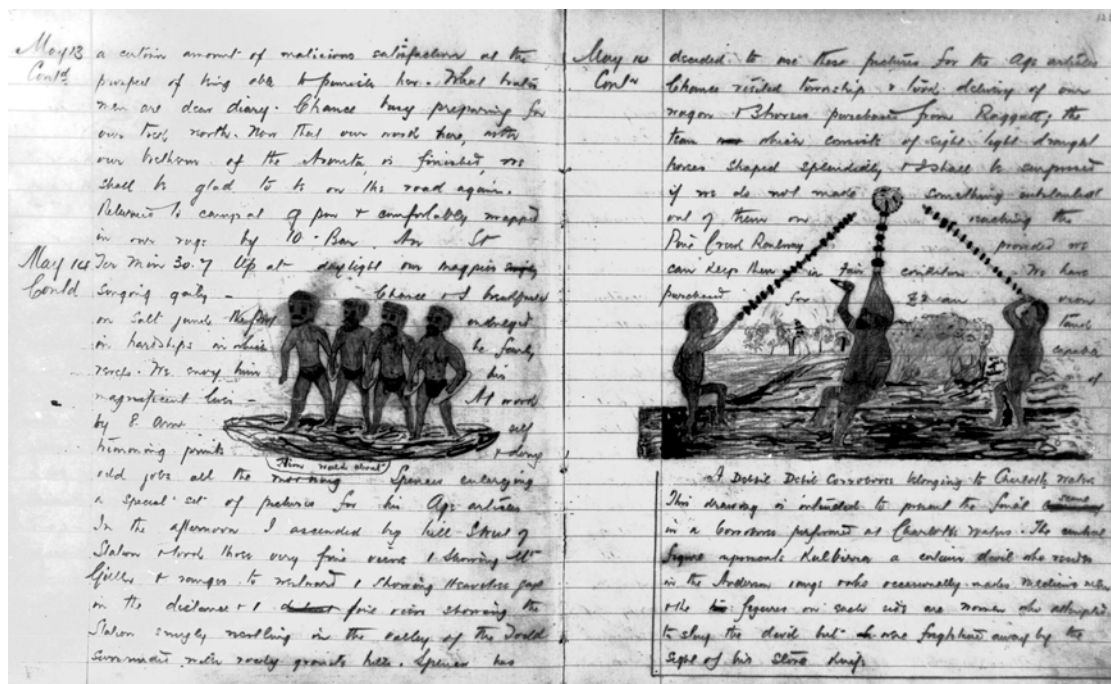 May 13
Contd
a certain amount of malicious satisfaction at the
of being able to punish her. What brutes
men are dear diary. Chance busy preparing for
our trek north. Now that our work here, with
our brethren of the Arunta, is finished, we
shall be glad to be on the road again.
Returned to camp at 9 pm & comfortably wrapped
in our rugs by 10 - Bar.
May 14
Contd
Ter Min 30.7 Up at daylight our magpies
singing gaily - Chance & I breakfasted
on salt junk
on hardships in which he
We envy him his
magnificent liver - At work
by 8. self
trimming prints & doing
odd jobs all the morning Spencer enlarging
a special set of pictures for his Age articles
In the afternoon I ascended big hill West of
Station & took three very fine views 1 showing Mt
Gillen & ranges to westward 1 showing Heavitree gap
in the distance & 1 fine view showing the
Station snugly nestling in the valley of the Todd
surrounded with rocky granite hills. Spencer has
May 14
Contd
decided to use these pictures for the Age articles
Chance visited township & took delivery of our
wagon & 3 horses purchased from Raggatt, the
team which consists of eight light draught
horses shaped splendidly & I shall be surprised
if we do not make something substantial
out of them on reaching the
Pine Creek Railway provided we
can keep them in fair condition. We have
purchased for an iron
tank
of
A Debbil Debbil Corroboree belonging to Charlotte Waters
This drawing is intended to present the final scene
in a Corroboree performed at Charlotte Waters. The central
figure represents Kulbirra a certain devil who resides
in the Anderson range & who occasionally makes medicine men
& the figures on each side are women who attempted
to slay the devil but were frightened away by the
sight of his stone knife